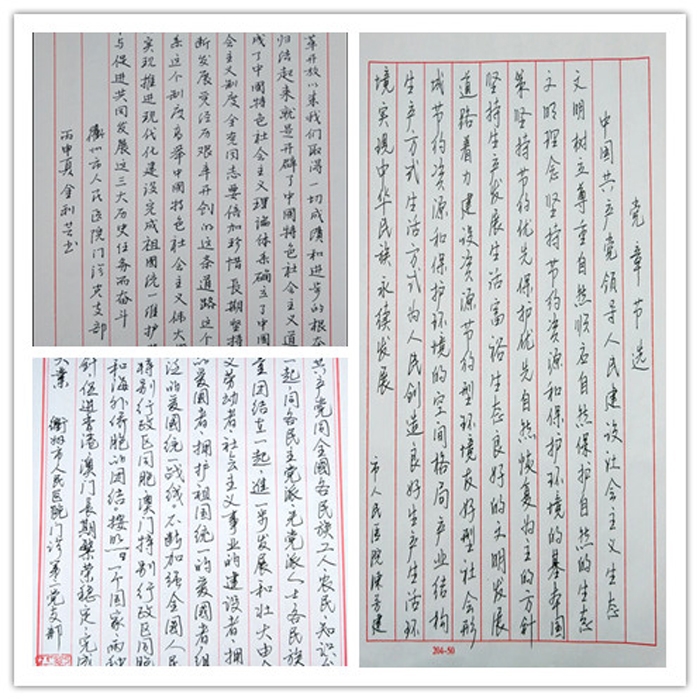 党章节选
中国共产党领导人民建设社会主义生态
文明树立尊重自然顺应自然保护自然的生态
文明理念坚持节约资源和保护环境的基本国
策坚持节约优先保护优先自然恢复为主的方针
坚持生产发展生活富裕生态良好的文明发展
道路着力建设资源节约型环境友好型社会形
成节约资源和保护环境的空间格局产业结构
生产方式生活方式为人民创造良好生产生活环
境实现中华民族永续发展
市人民医院陈芳建
204-50
革开放以来我们取得一切成绩和进步的根本
归结起来就是开辟了中國特色社会主义道
成了中國特色社会主义理论体系确立了中國
会主义制度全党同志要倍加珍惜长期坚持
断发展党经历艰辛开创的这条道路这个
系这个制度高举中國特色社会主义伟大
实现推进现代化建设完成祖國统一维护
与促进共同发展这三大历史任务而奋斗
衢州市人民医院门诊党支部
丙申夏金利芝书
共产党同全國各民族工人农民、知识分
一起,同各民主党派、无党派人士各民族
重团结在一起,进一步发展和壮大由全
义劳动者、社会主义事业的建设者、拥
的爱國者、拥护祖国统一的爱國者组
泛的爱國统一战线。不断加强全國人民
特别行政区同胞澳门特别行政区同胞
和海外侨胞的团结。按照一个國家、两种
针,促进香港澳门长期繁荣稳定,完成
大业
衢州市人民医院门诊第一党支部